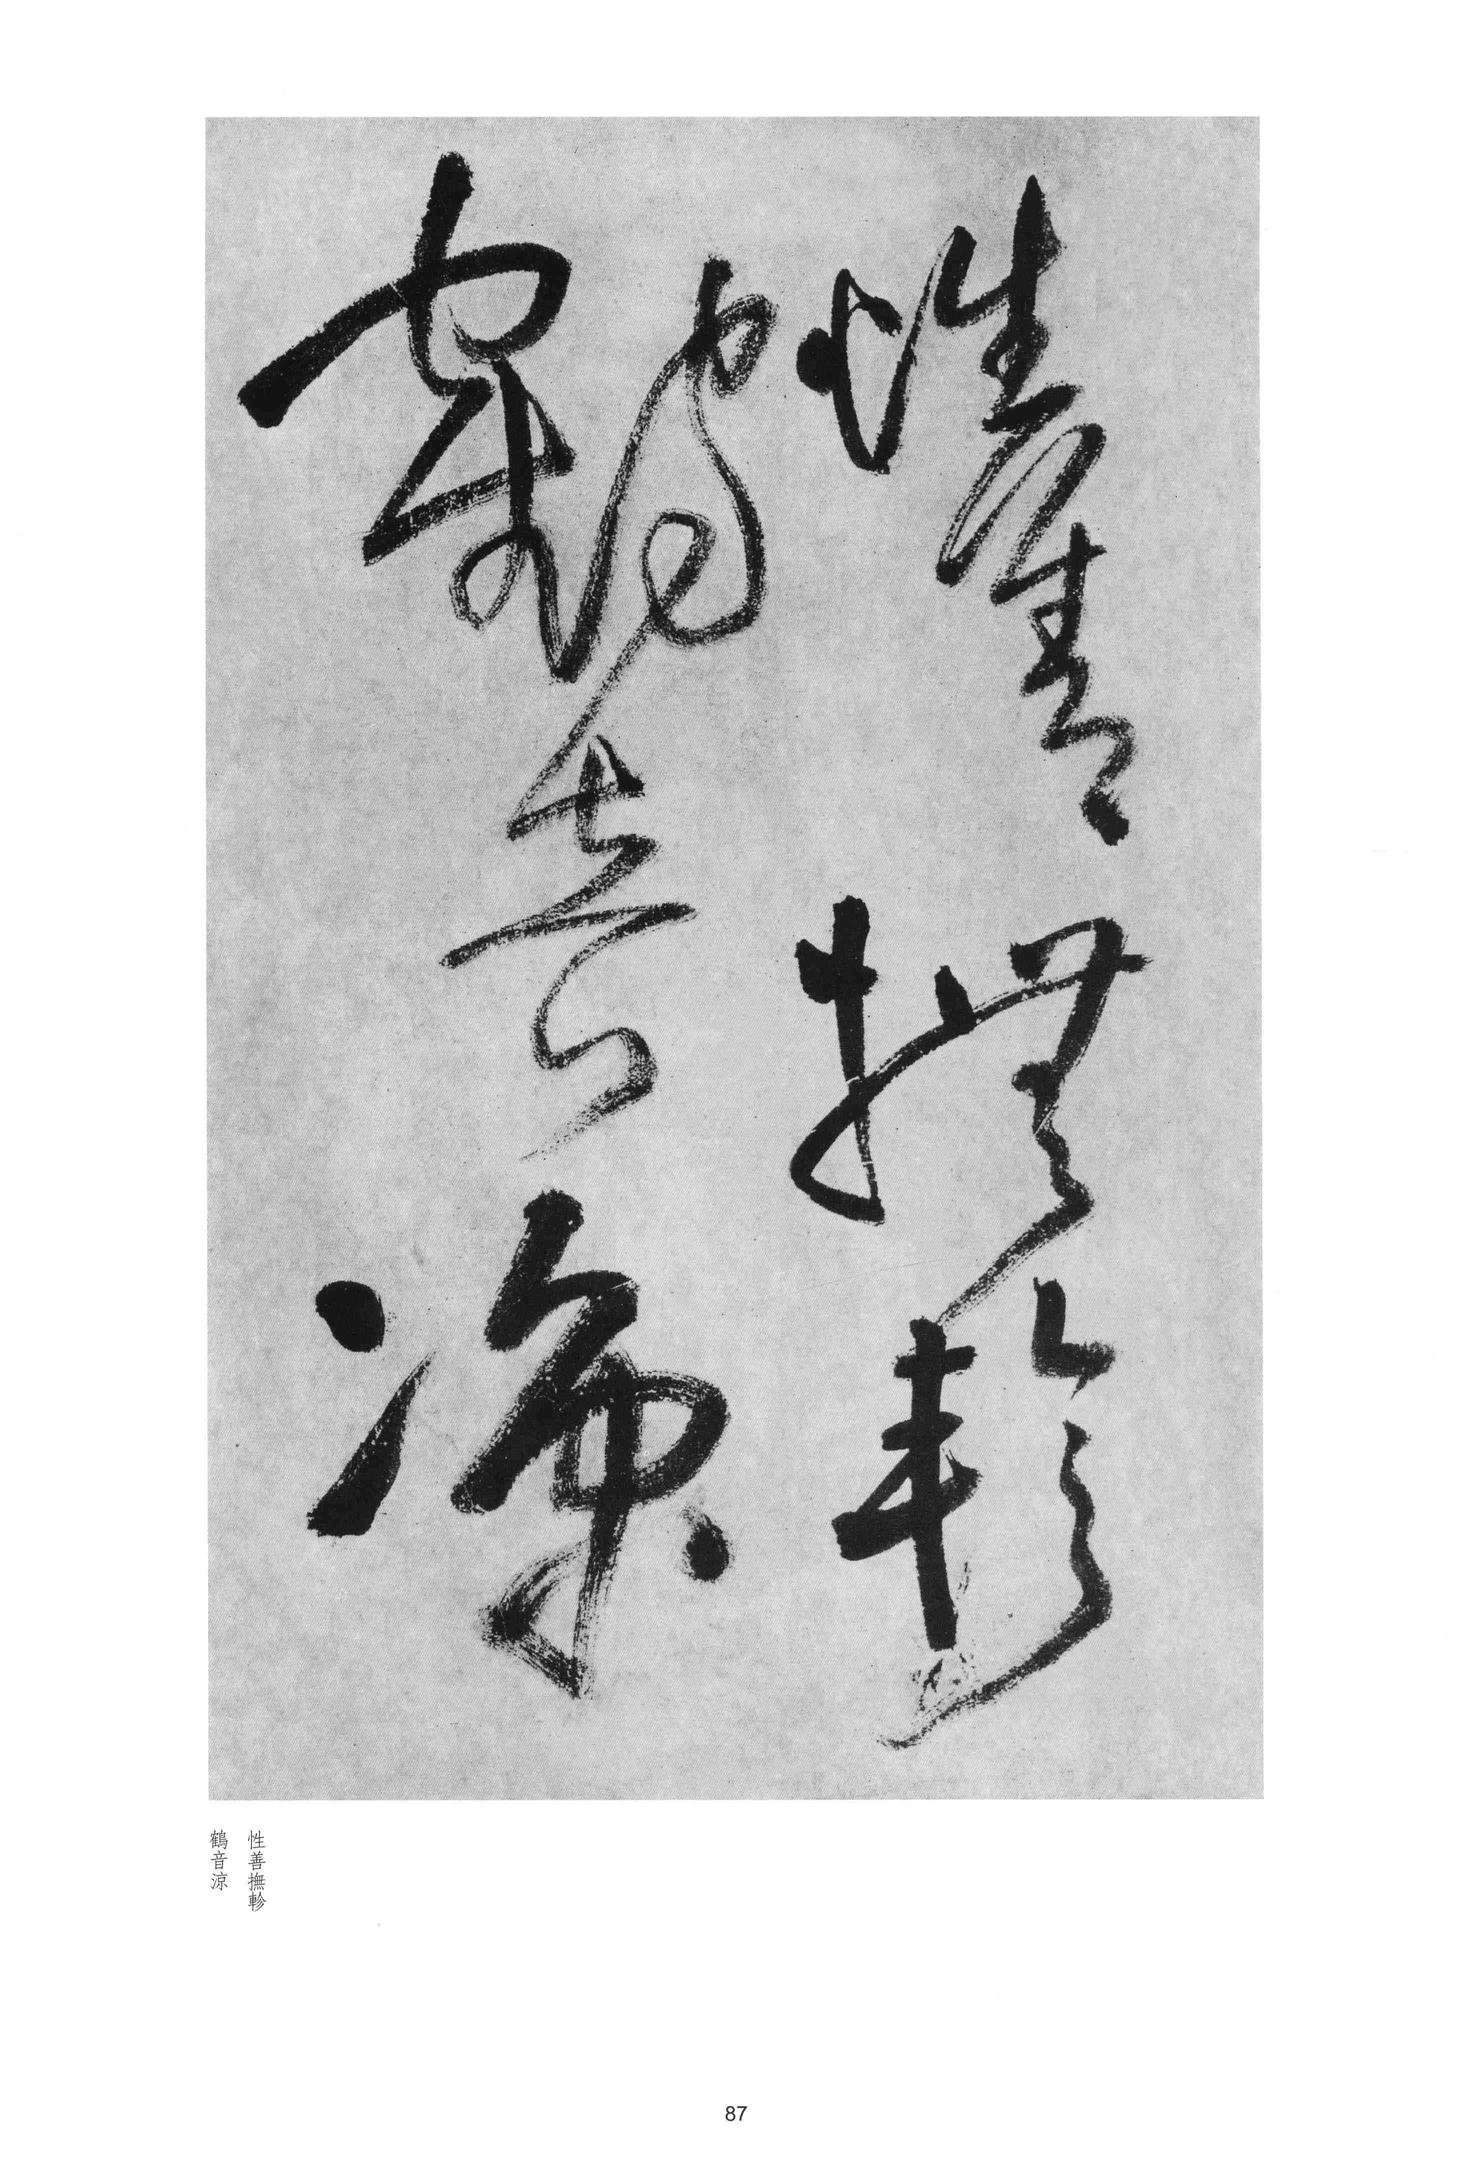 性善撫軫
鶴音涼
性善撫軫
鶴音涼
87